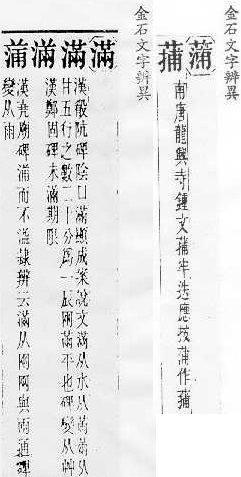 金石文字辨異
蒲
蒲
南唐龍興寺鍾文蒲牢迭應按蒲作蒱
金石文字辨異
滿
滿
漢殽阬碑陰口滿顯成案說文滿从水从㒼㒼从
廿五行之數二十分為一辰㒼平也碑變从艸
滿
漢鄭固碑未滿期限
漢堯廟碑滿而不溢隸辨云滿从网网與雨通碑
變从雨